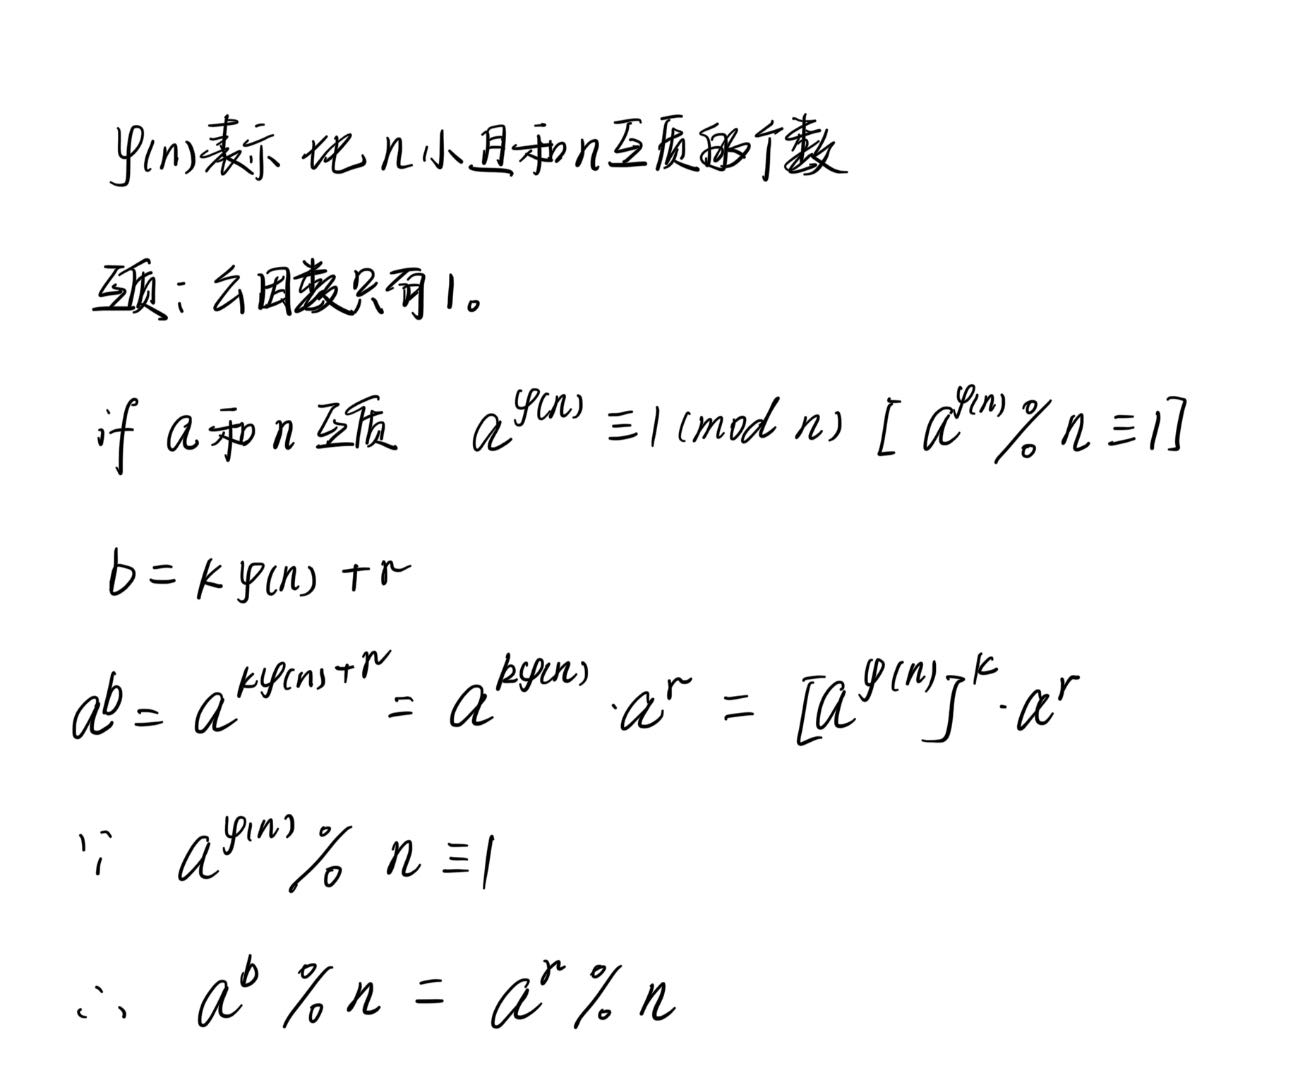 φ(n)表示 比n小且和n互质的个数
互质：公因数只有1。
if a和n互质 a^φ(n) ≡1 (mod n) [ a^φ(n) % n ≡1]
b = kφ(n) + r
a^b = a^(kφ(n)+r) = a^(kφ(n)) · a^r = [a^φ(n)]^k · a^r
∵ a^φ(n) % n ≡1
∴ a^b % n = a^r % n